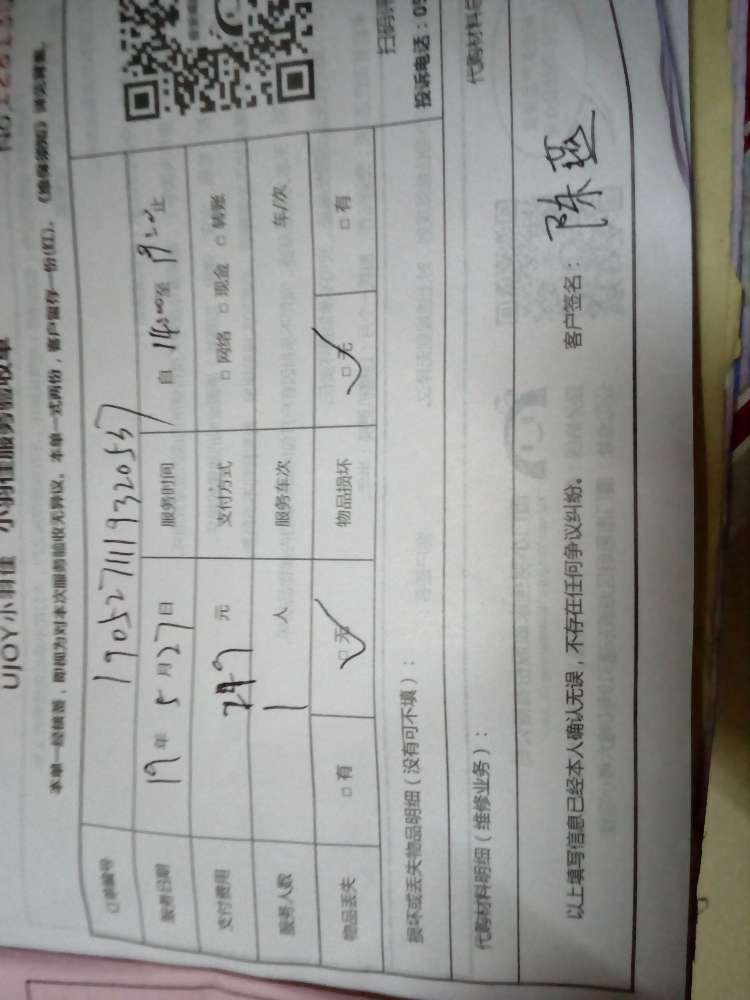 UJOY小羽佳 小羽佳服务验收单
本单一经填写，即视为对本次服务验收无异议。本单一式两份，客户留存一份(红)。《维保须知》请见背面。
订单编号 190527111932053
服务日期 19年5月27日 服务时间 自14:00至
支付费用 249元 支付方式 □网络 □现金 □转账
服务人数 1人 服务车次 车/次
物品丢失 □有 □无 物品损坏 □无 □有
损坏或丢失物品明细（没有可不填）：
扫码
投诉电话：05
代购材料明细（维修业务）：
代购材料
以上填写信息已经本人确认无误，不存在任何争议纠纷。 客户签名：陈